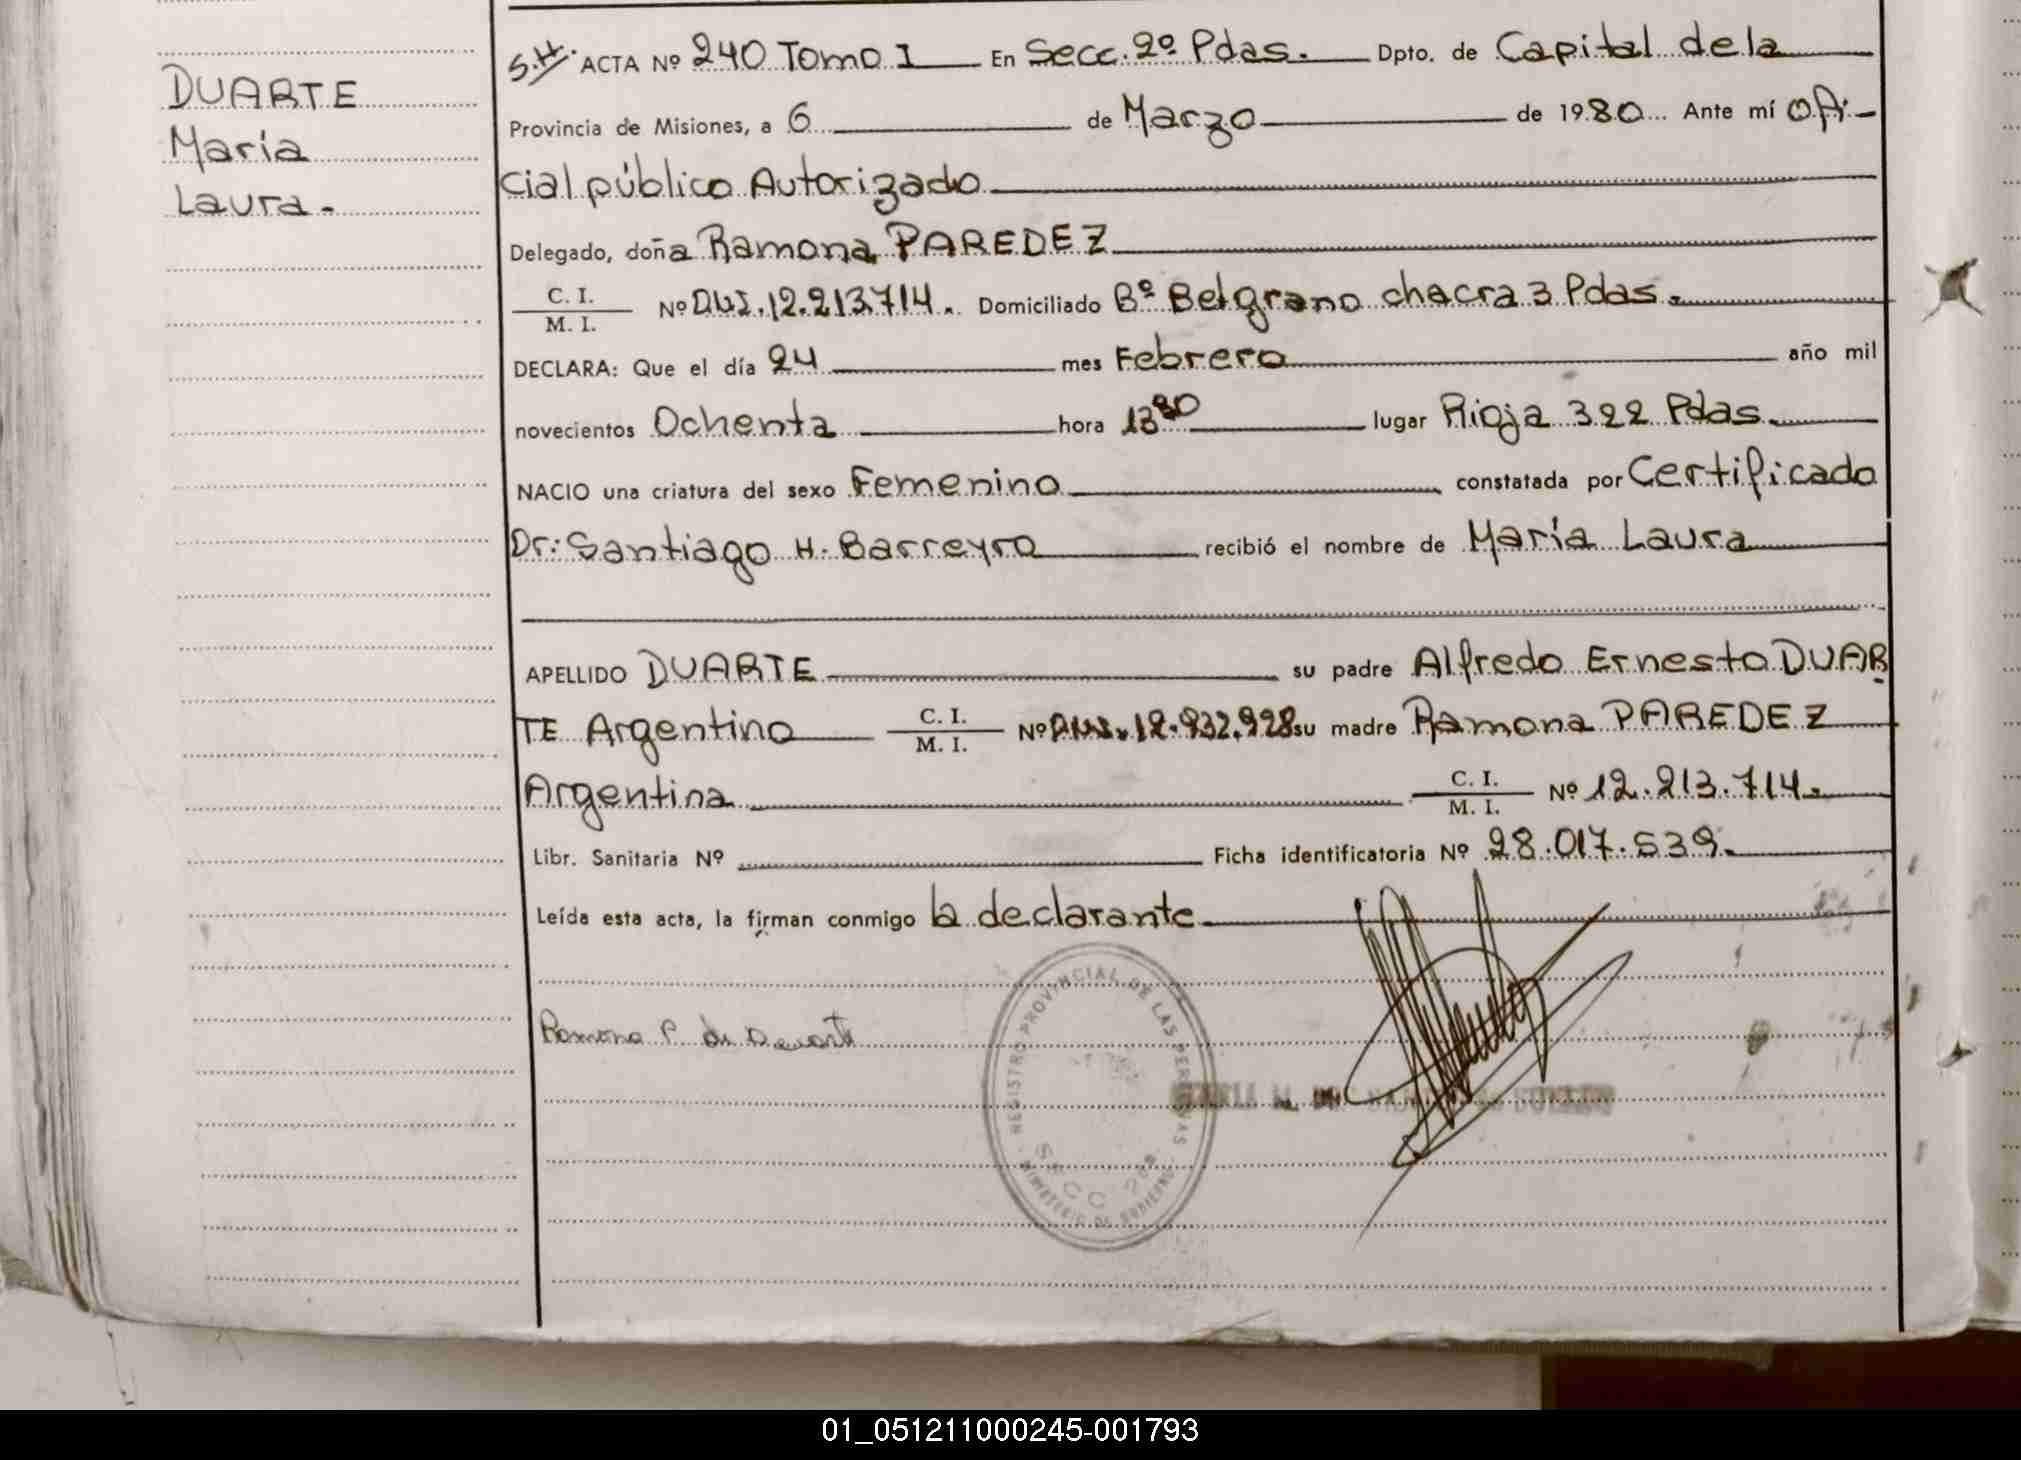 DUARTE
María
Laura.-
S.H. ACTA Nº 240 Tomo I En Secc. 2º Pdas. Dpto. de Capital de la
Provincia de Misiones, a 6 de Marzo de 1980 Ante mí Ofi-
cial público Autorizado
Delegado, doña Ramona PAREDEZ
C. I.
M. I. Nº DUI. 12.213.714. Domiciliado Bº Belgrano chacra 3 Pdas.
DECLARA: Que el día 24 mes Febrero año mil
novecientos Ochenta hora 13 30 lugar Rioja 322 Pdas.
NACIO una criatura del sexo Femenino constatada por Certificado
Dr: Santiago H. Barreyro recibió el nombre de María Laura
APELLIDO DUARTE su padre Alfredo Ernesto DUAR
TE Argentino C. I.
M. I. Nº 12.932.928 su madre Ramona PAREDEZ
Argentina C. I.
M. I. Nº 12.213.714.
Libr. Sanitaria Nº Ficha identificatoria Nº 28.017.539.
Leída esta acta, la firman conmigo la declarante
Ramona P. de Duarte
REGISTRO PROVINCIAL DE LAS PERSONAS
SECC. 2da
MINISTERIO DE GOBIERNO
01_051211000245-001793